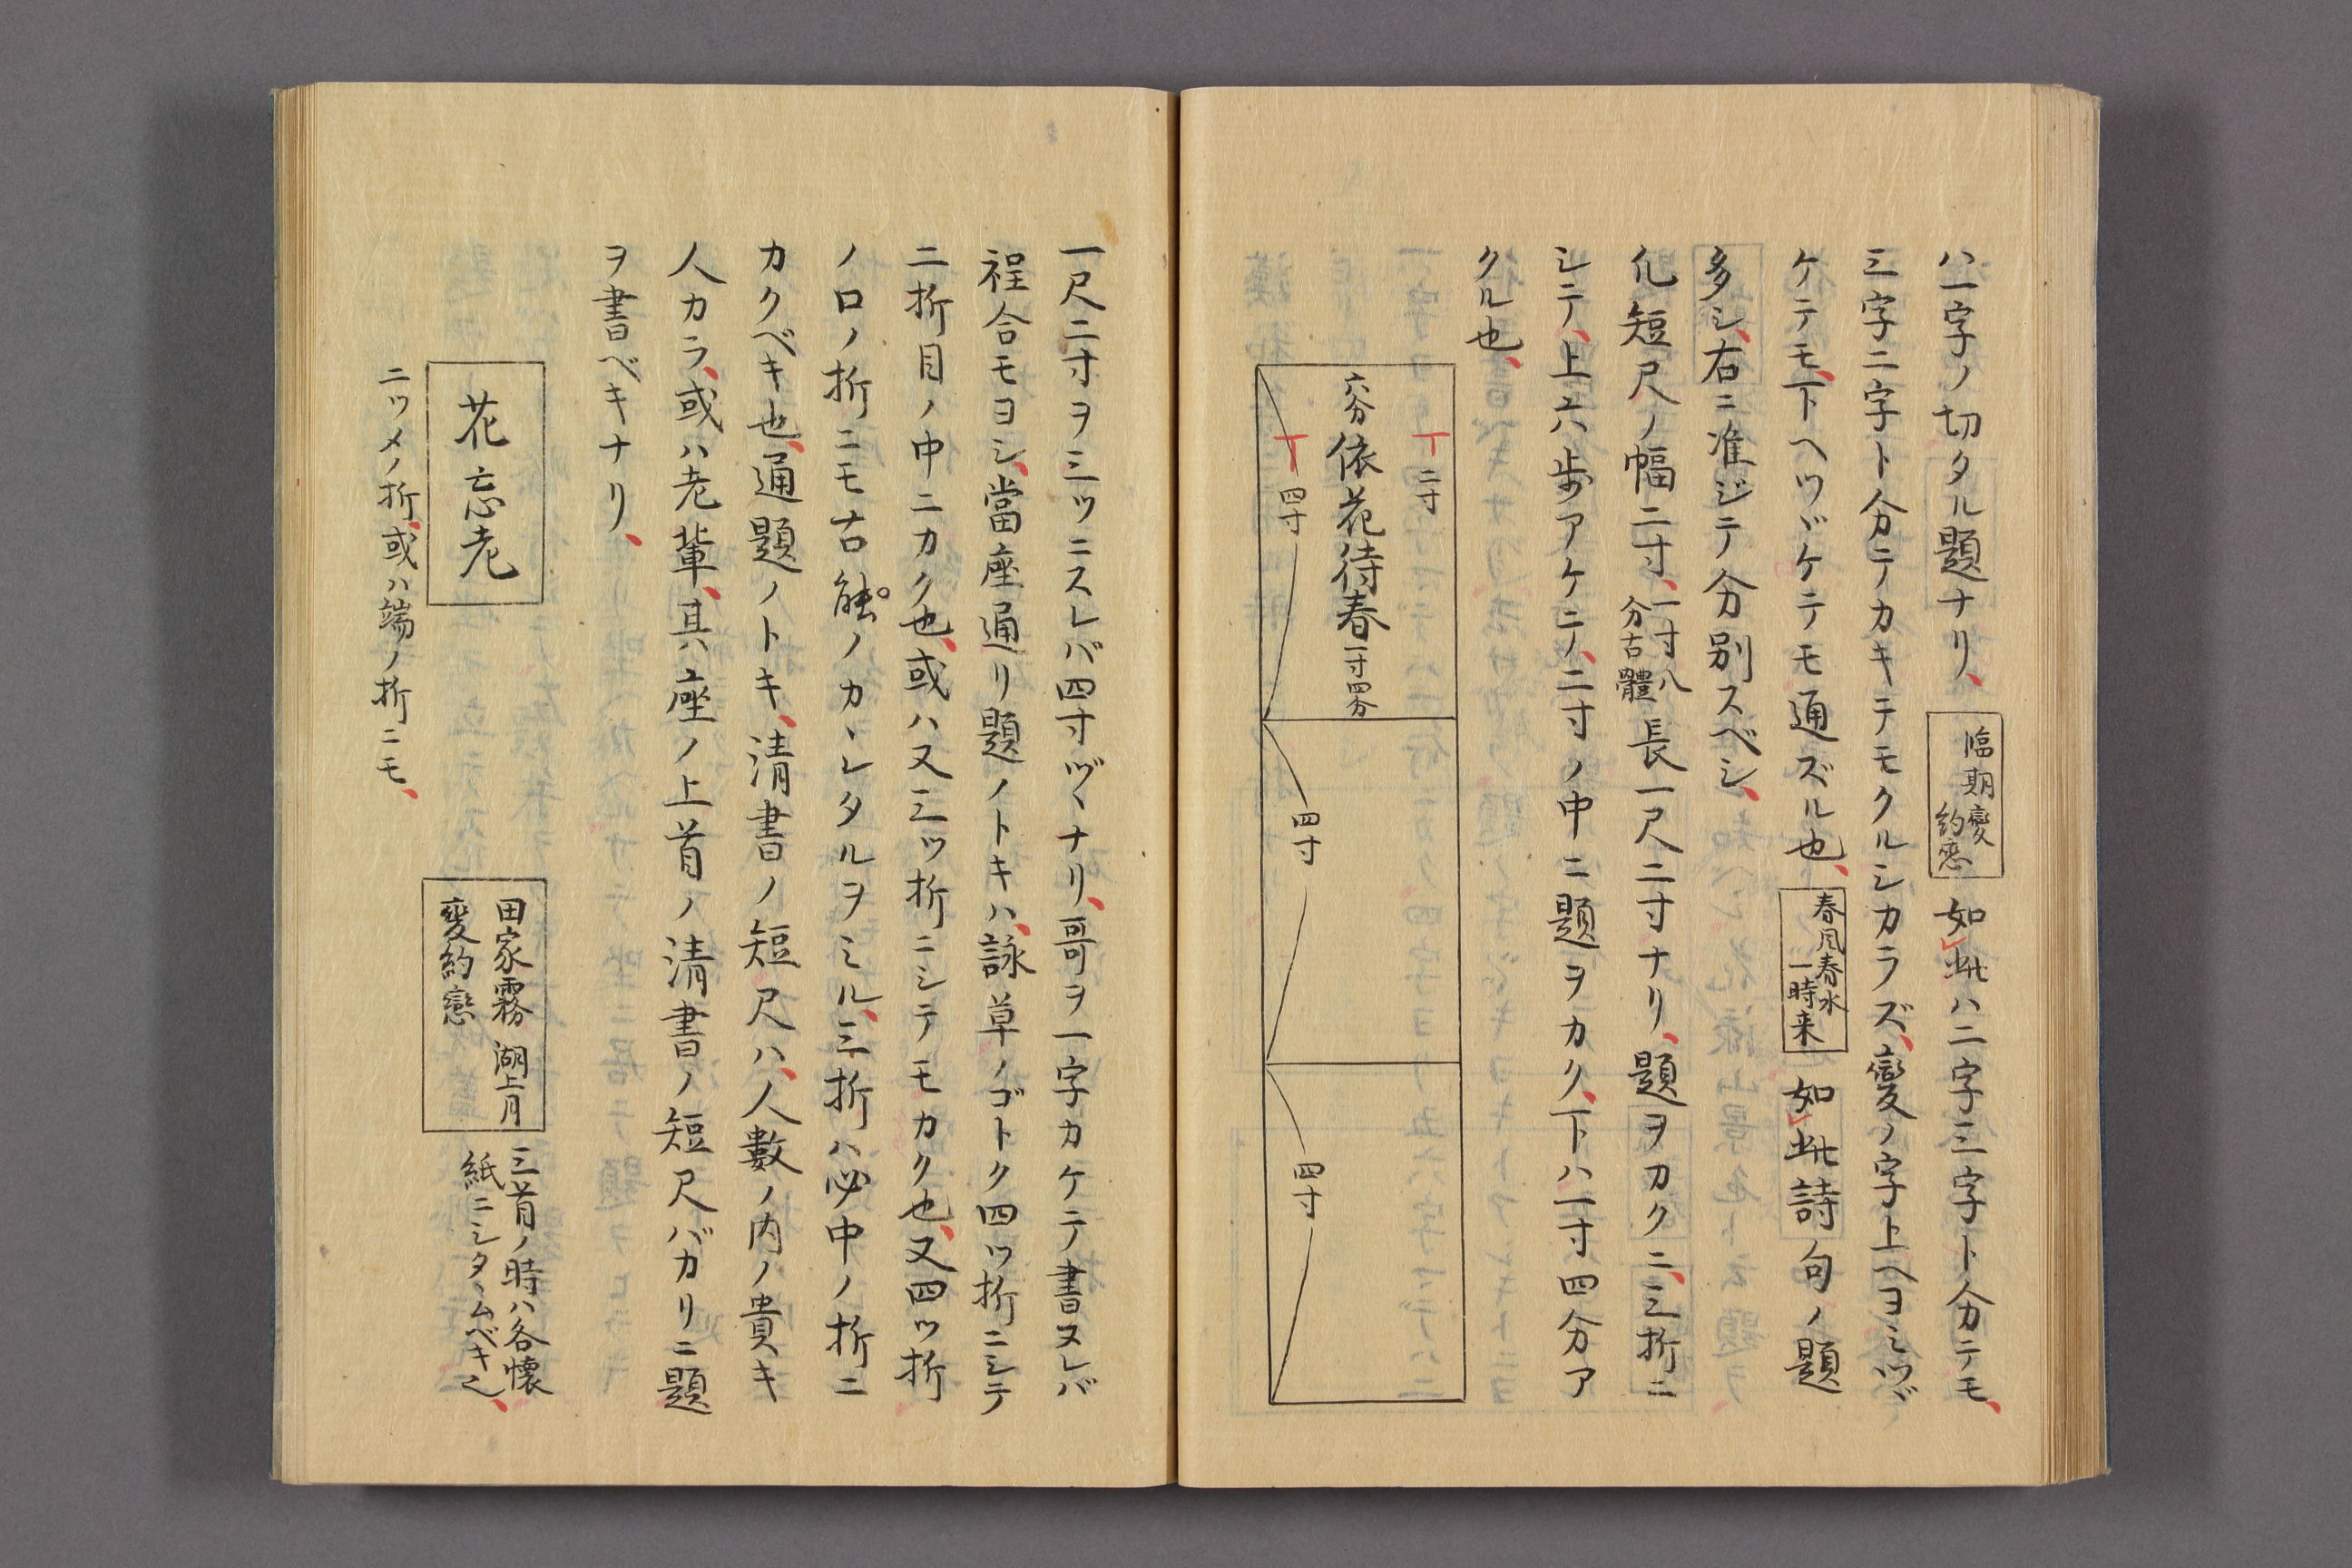 ハ一字ノ切タル題ナリ、
臨期變
約戀
如此ハ二字三字ト分テモ、
三字二字ト分テカキテモクルシカラズ、變ノ字上ヘヨミツヾ
ケテモ、下ヘツヾケテモ通ズル也、
春風春水
一時来
如此詩句ノ題
多シ、右ニ准ジテ分別スベシ、
凡短尺ノ幅二寸、
一寸八
分古體
長一尺二寸ナリ、題ヲカクニ、三折ニ
シテ、上六歩アケテ、二寸ノ中ニ題ヲカク、下ハ一寸四分ア
クル也、
二寸
六分
依花待春
一寸四分
四寸
四寸
四寸
一尺二寸ヲ三ツニスレバ四寸ヅヽナリ、哥ヲ一字カケテ書ヌレバ
程合モヨシ、當座通リ題ノトキハ、詠草ノゴトク四ツ折ニシテ
二折目ノ中ニカク也、或ハ又三ツ折ニシテモカク也、又四ツ折
ノ口ノ折ニモ古触ノカヽレタルヲミル、三折ハ必中ノ折ニ
カクベキ也、通題ノトキ、清書ノ短尺ハ、人數ノ内ノ貴キ
人カラ、或ハ老輩、其座ノ上首ノ清書ノ短尺バカリニ題
ヲ書ベキナリ、
花忘老
田家霧 湖上月
變約戀
三首ノ時ハ各懐
紙ニシタヽムベキ也、
二ツメノ折、或ハ端ノ折ニモ、